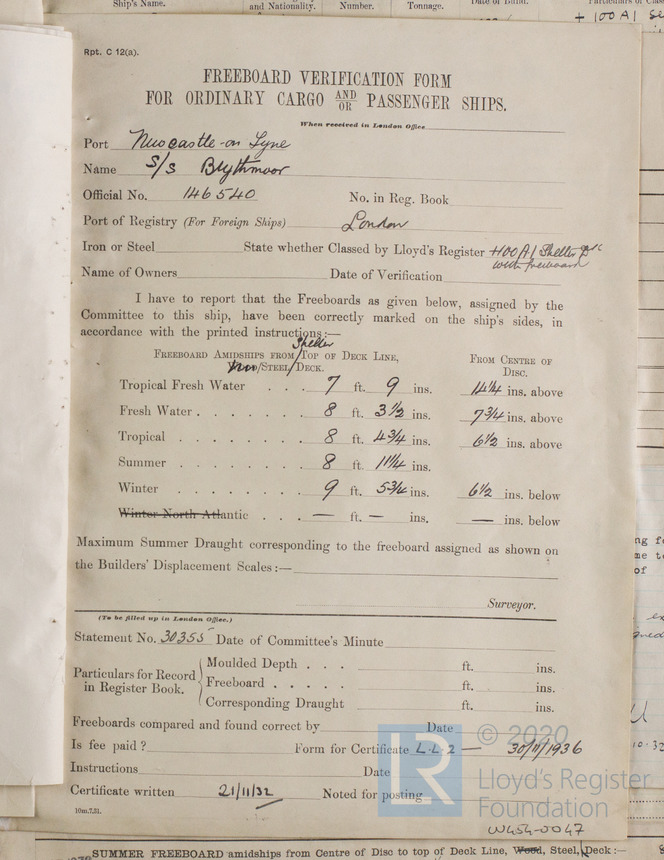 Ship's Name.
and Nationality.
Number.
Tonnage.
Date of Build.
+ 100 A1
Rpt. C 12(a).
FREEBOARD VERIFICATION FORM
FOR ORDINARY CARGO AND OR PASSENGER SHIPS.
When received in London Office
Port Newcastle-on Tyne
Name S/S Blythmoor
Official No. 146540 No. in Reg. Book
Port of Registry (For Foreign Ships) London
Iron or Steel State whether Classed by Lloyd's Register +100 A1 Shelter Dk
with freeboard
Name of Owners Date of Verification
I have to report that the Freeboards as given below, assigned by the
Committee to this ship, have been correctly marked on the ship's sides, in
accordance with the printed instructions:—
Shelter
FREEBOARD AMIDSHIPS FROM TOP OF DECK LINE, FROM CENTRE OF
/STEEL/DECK. DISC.
Tropical Fresh Water . . . 7 ft. 9 ins. 14 1/4 ins. above
Fresh Water . . . . . . . 8 ft. 3 1/2 ins. 7 3/4 ins. above
Tropical . . . . . . . . 8 ft. 4 3/4 ins. 6 1/2 ins. above
Summer . . . . . . . . 8 ft. 11 1/4 ins.
Winter . . . . . . . . 9 ft. 5 3/4 ins. 6 1/2 ins. below
Winter North Atlantic . . . — ft. — ins. — ins. below
Maximum Summer Draught corresponding to the freeboard assigned as shown on
the Builders' Displacement Scales:—
Surveyor.
(To be filled up in London Office.)
Statement No. 30355 Date of Committee's Minute
Particulars for Record in Register Book.
Moulded Depth . . . ft. ins.
Freeboard . . . . . ft. ins.
Corresponding Draught ft. ins.
Freeboards compared and found correct by Date
Is fee paid? Form for Certificate L.L.2 — 30/11/1936
Instructions Date
Certificate written 21/11/32 Noted for posting
10m.7.31.
LR
© 2020
Lloyd's Register
Foundation
W454-0047
SUMMER FREEBOARD amidships from Centre of Disc to top of Deck Line, Wood, Steel, Deck:—